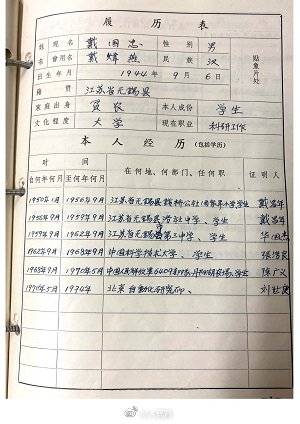 履 历 表
姓 现名 戴国志 性别 男
名 曾用名 戴 民族 汉
出生年月 1944年9月6日
籍贯 江苏省无锡县
家庭出身 贫农 本人成份 学生
文化程度 大学 现在职业 科研工作
贴照片处
本 人 经 历 (包括学历)
时间 在何地、何部门、任何职 证明人
自何年何月 至何年何月
1950年1月 1956年9月 江苏省无锡县钱桥公社 小学 学生 戴昌年
1956年9月 1959年9月 江苏省无锡县 中学、学生 戴昌年
1959年9月 1962年9月 江苏省无锡县第三中学、学生 华国杰
1962年9月 1968年9月 中国科学技术大学、学生 张浩良
1968年9月 1970年5月 中国人民解放军6409部队 学生 陈广义
1970年5月 1974年 北京自动化研究所、 刘